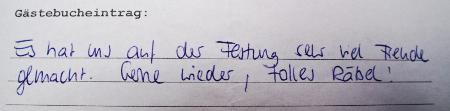 Gästebucheintrag:
Es hat uns auf der Festung sehr viel Freude
gemacht. Gerne wieder, tolles Rätsel!